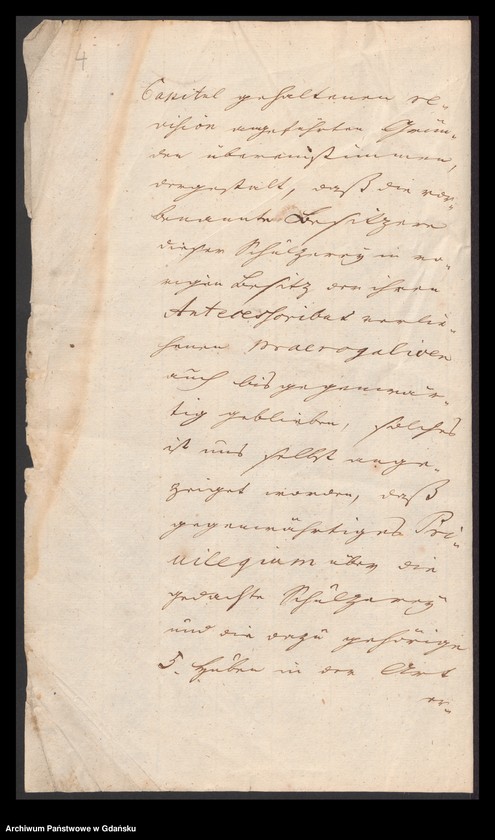 4
Capitel gehaltenen re-
vision angeführten Grün-
den übereinstimmen,
dergestalt, daß die vor-
benannte Besitzere
dieser Schültzerey in ru-
higen Besitz der ihren
Antecessoribus verlie-
henen Praerogativen
auch bis gegenwär-
tig geblieben, solches
ist uns selbst ange-
zeiget worden, daß
gegenwährtiges Pri-
vilegium über die
gedachte Schültzerey
und die dazu gehörige
5. Huben in der Art
er-
Archiwum Państwowe w Gdańsku